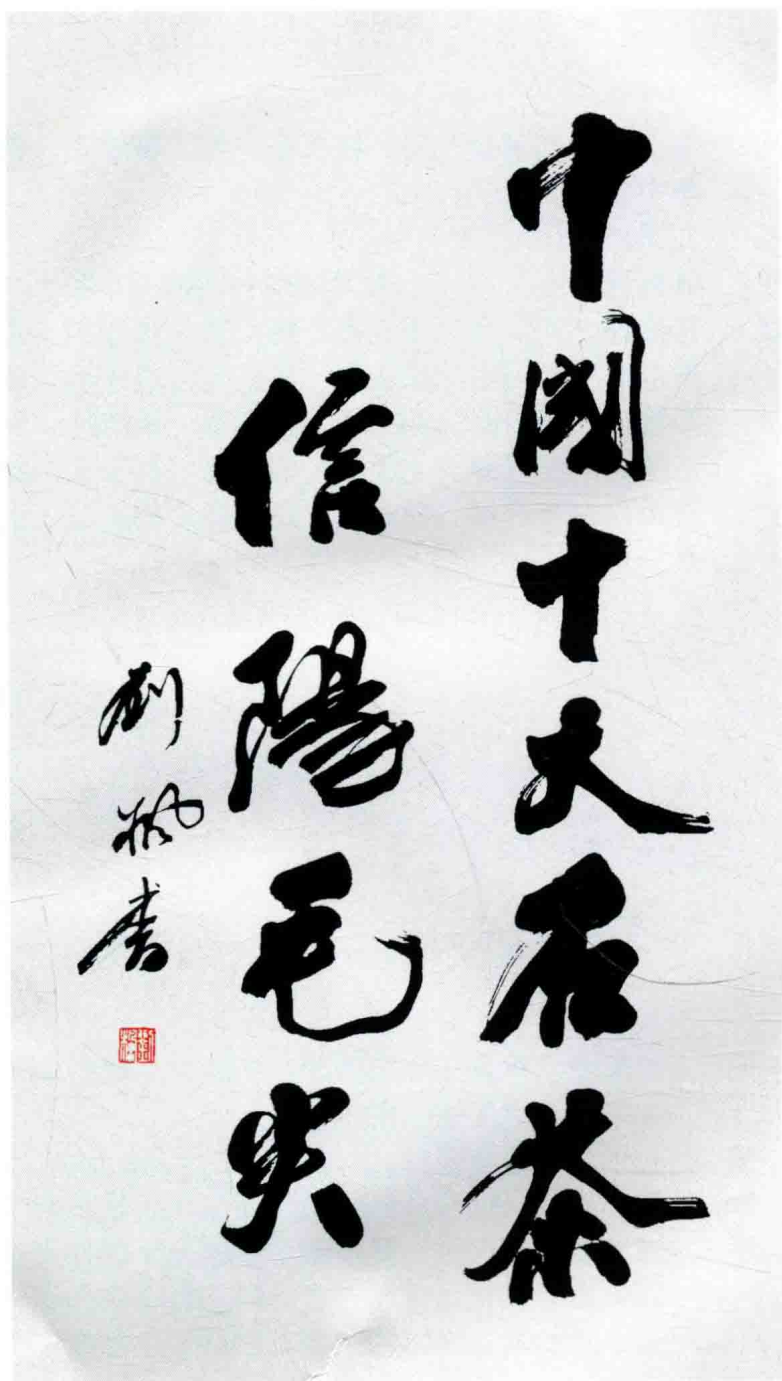 中國十大名茶
信陽毛尖
劉楓書